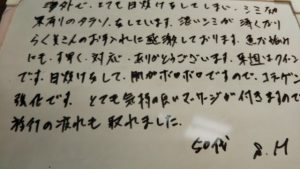 海外で、とても日焼けをしてしまい、シミ効
果有りのクラソをしています。濃いシミが薄くなり
らく美さんのお手入れに感激しております。急な
にも、すぐ、対応、ありがとうございます。果担はクイーン
です。日焼けをして、肌がボロボロですので、コラーゲン
強化です。とても気持の良いマッサージが付きますので
旅行の疲れも取れました。
50代 S.H